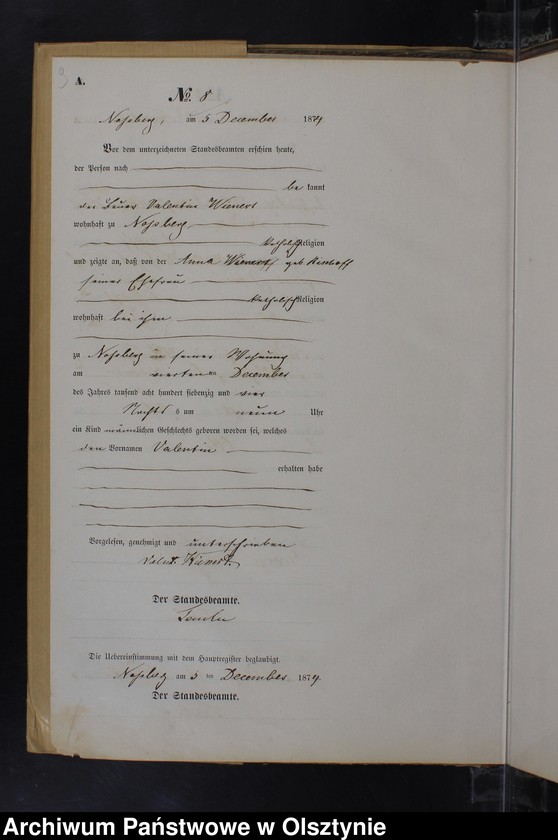 A.
No. 8
Noßberg, am 5 December 1874
Vor dem unterzeichneten Standesbeamten erschien heute,
der Person nach
be kannt
der Bauer Valentin Wienert
wohnhaft zu Noßberg
katholisch Religion
und zeigte an, daß von der Anna Wienert geb.
seiner Ehefrau
katholisch Religion
wohnhaft bei ihm
zu Noßberg in seiner Wohnung
am vierten December
des Jahres tausend acht hundert siebenzig und vier
Nachts um neun Uhr
ein Kind männlichen Geschlechts geboren worden sei, welches
den Vornamen Valentin
erhalten habe
Vorgelesen, genehmigt und unterschrieben
Valent. Wienert.
Der Standesbeamte.
Die Uebereinstimmung mit dem Hauptregister beglaubigt.
Noßberg am 5 ten December 1874.
Der Standesbeamte.
Archiwum Państwowe w Olsztynie